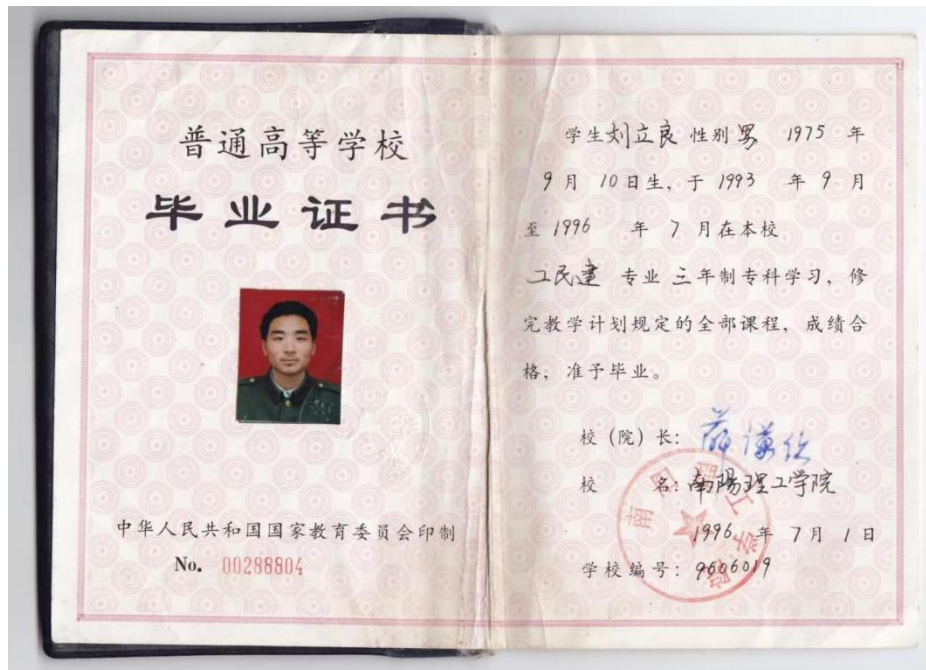 普通高等学校
毕业证书
中华人民共和国国家教育委员会印制
No. 00288804
学生刘立良 性别 男 1975 年
9 月 10 日生，于 1993 年 9 月
至 1996 年 7 月在本校
工民建 专业 三 年制专科学习，修
完教学计划规定的全部课程，成绩合
格，准予毕业。
校（院）长：
校 名：南陽理工学院
1996 年 7 月 1 日
学校编号：9606019